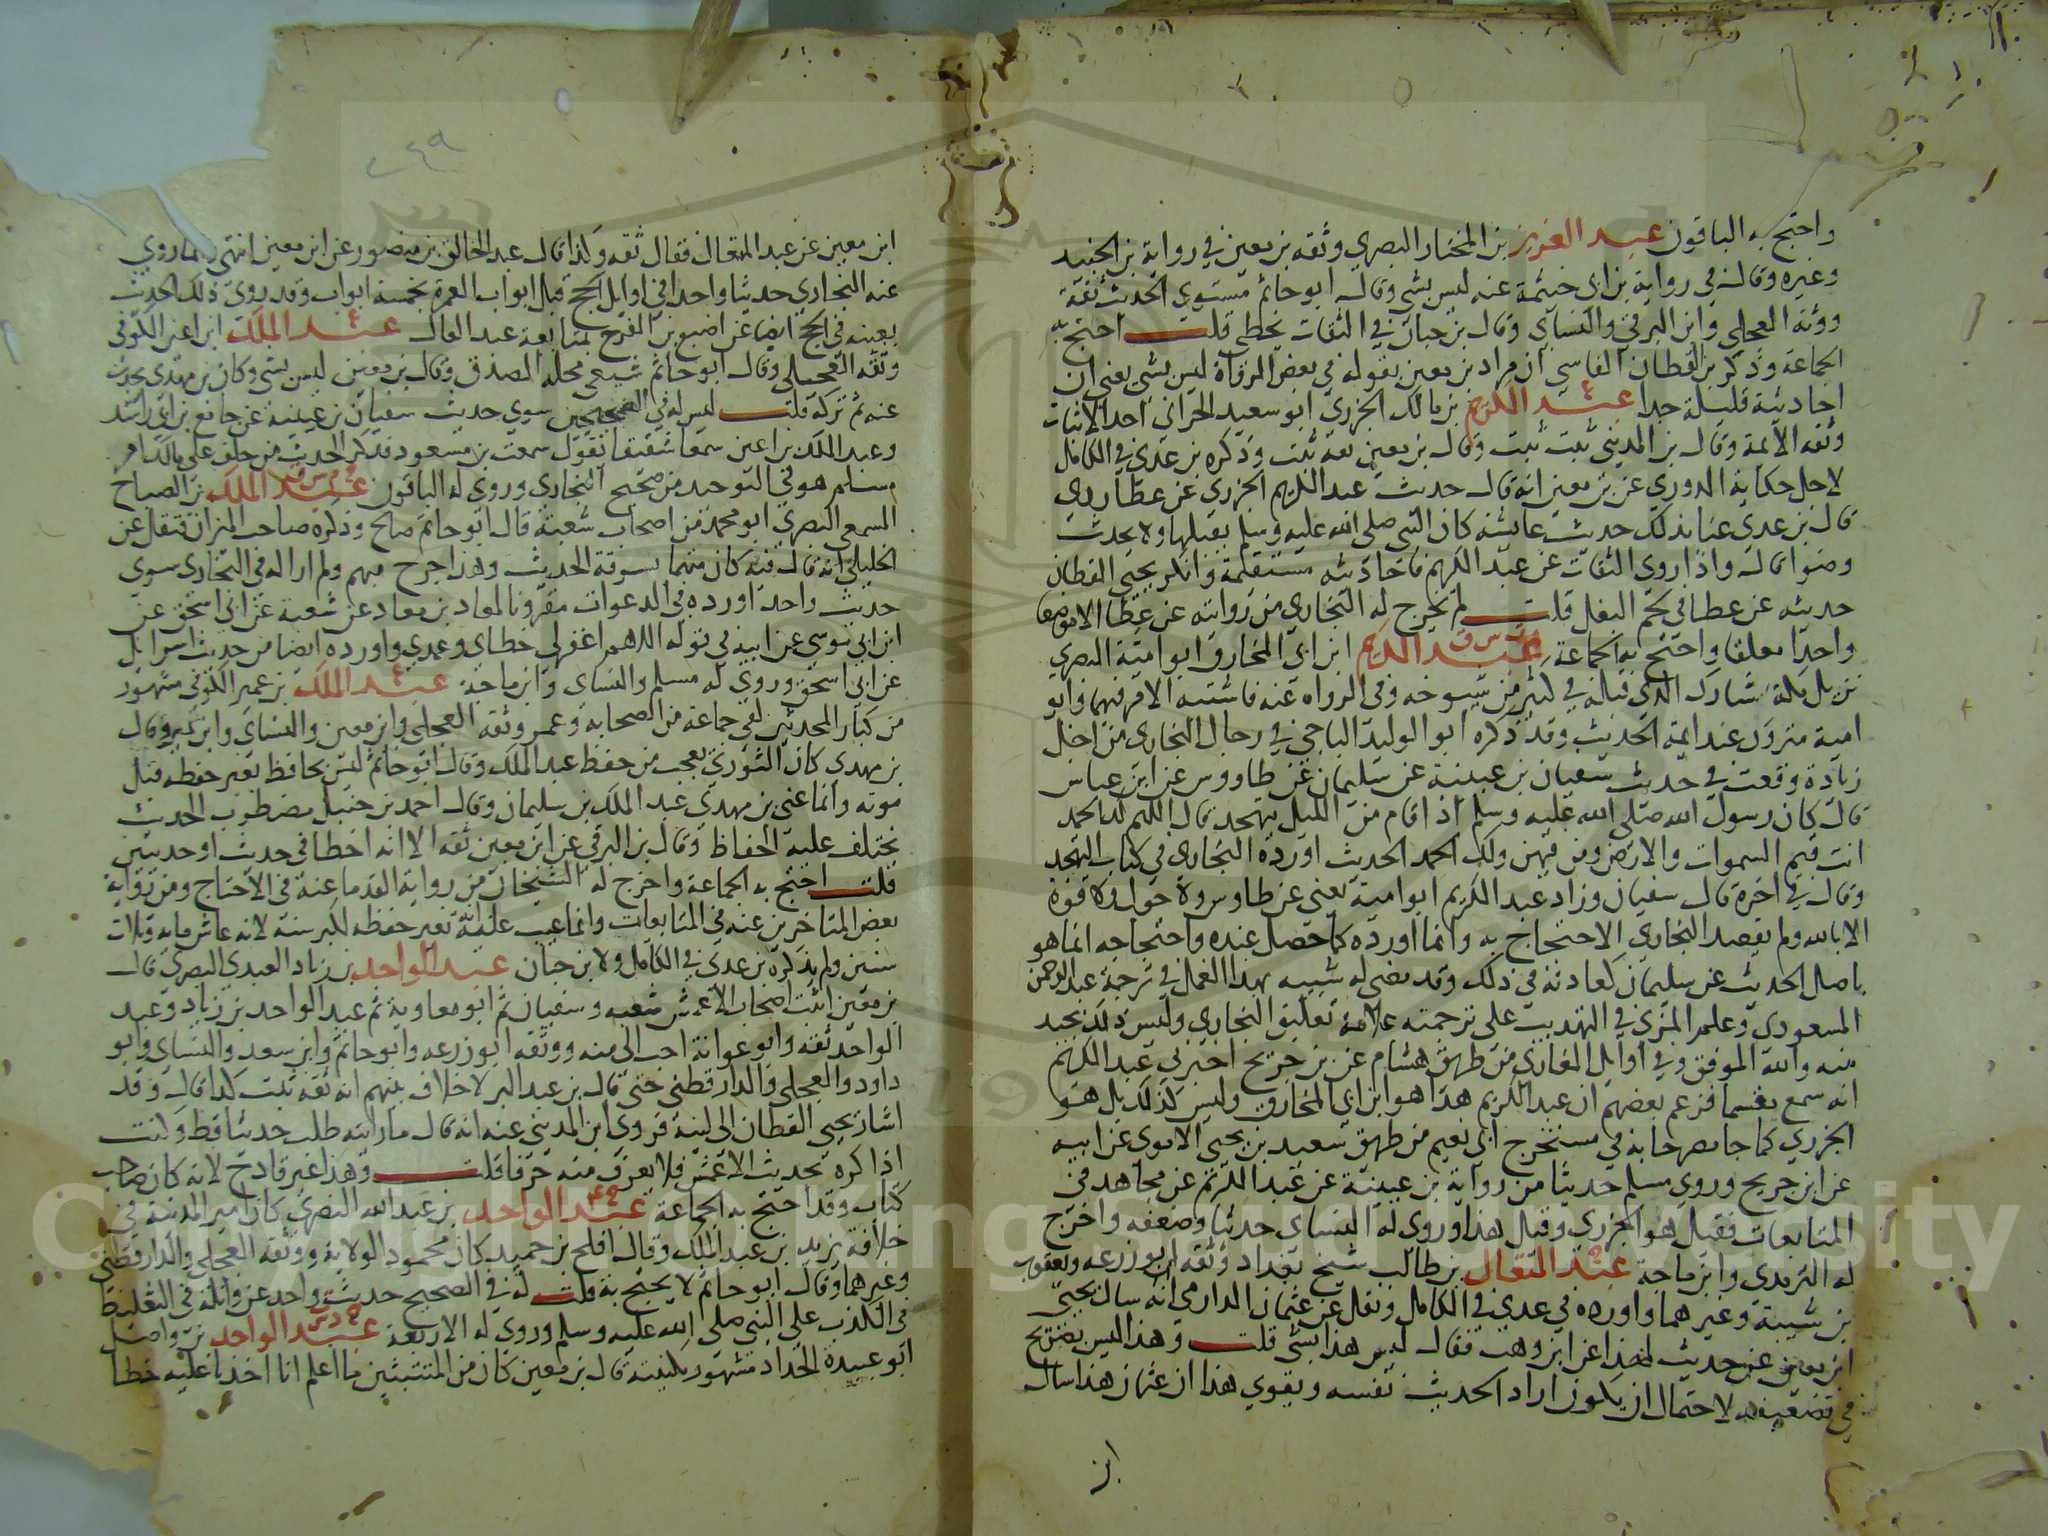 واحتج به الباقون عبد العزيز بن المختار البصري وثقه بن معين في رواية بن الجنيد
وغيره وقال في رواية بن ابي خيثمة عنه ليس بشي وقال ابو حاتم مستوي الحديث ثقة
ووثقه العجلي وابن البرقي والنساي وقال بن حبان في الثقات يخطي قلت احتج به
الجماعة وذكر بن القطان الفاسي ان مراد بن معين بقوله في بعض الرواة ليس بشي يعني ان
احاديثه قليلة جدا عبد الكريم بن مالك الجزري ابو سعيد الحراني احد الاثبات
وثقه الايمة وقال بن المديني ثبت ثبت وقال بن معين ثقة ثبت وذكره بن عدي في الكامل
لاجل حكاية الدوري عن بن معين انه قال حديث عبد الكريم الجزري عن عطا ردي
قال بن عدي عنا بذلك حديث عايشه كان النبي صلى الله عليه وسلم يقبلها ولا يحدث
وضوا قال واذا روى الثقات عن عبد الكريم فاحاديثه مستقيمة وانكر يحيى القطان
حديثه عن عطا في لحم البغل قلت لم يخرج له البخاري من روايته عن عطا الا موضعا
واحدا معلقا واحتج به الجماعة عبد الكريم ابن ابي المخارق ابو امية البصري
نزيل مكة شارك الذي قبله في كثير من شيوخه وفي الرواه عنه فاشتبه الامر فيهما وابو
امية متروك عند ايمة الحديث وقد ذكره ابو الوليد الباجي في رجال البخاري من اجل
زيادة وقعت في حديث سفيان بن عيينة عن سليمان عن طاووس عن ابن عباس
قال كان رسول الله صلى الله عليه وسلم اذا قام من الليل يتهجد قال اللهم لك الحمد
انت قيم السموات والارض ومن فيهن ولك الحمد الحديث اورده البخاري في كتاب التهجد
وقال في اخره قال سفيان وزاد عبد الكريم ابو امية يعني عن طاوس ولا حول ولا قوة
الا بالله ولم يقصد البخاري الاحتجاج به وانما اورده كما حصل عنده واحتجاجه انما هو
باصل الحديث عن سليمان كعادته في ذلك وقد مضى له شبيه بهذا العمل في ترجمة عبد الرحمن
المسعودي وعلم المزي في التهذيب على ترجمته علامة تعليق البخاري وليس ذلك بجيد
منه والله الموفق وفي اوايل المغازي من طريق هشام عن بن جريج اخبرني عبد الكريم
انه سمع مقسما فزعم بعضهم ان عبد الكريم هذا هو ابن ابي المخارق وليس كذلك بل هو
الجزري كما جا مصرحا به في مستخرج ابي نعيم من طريق سعيد بن يحيى الاموي عن ابيه
عن ابن جريج وروى مسلم حديثا من رواية بن عيينة عن عبد الكريم عن مجاهد في
المتابعات فقيل هو الجزري وقيل هذا وروى له النساي حديثا وضعفه واخرج
له الترمذي وابن ماجة عبد المتعال بن طالب شيخ بغداد وثقه ابو زرعه ويعقوب
بن شيبة وغيرهما واورده بن عدي في الكامل ونقل عن عثمان الدارمي انه سال يحيى
ابن معين عن حديث لهذا عن ابن وهب فقال ليس هذا بشي قلت وهذا ليس بصريح
في تضعيفه لاحتمال ان يكون اراد الحديث نفسه ويقوي هذا ان عثمان هذا سال
ابن
٢٤٩
ابن معين عن عبد المتعال فقال ثقه وكذا قال عبد الخالق بن منصور عن ابن معين انتهى وانما روى
عنه البخاري حديثا واحدا في اوايل الحج قبل ابواب العمرة بخمسة ابواب وقد روى ذلك الحديث
بعينه في الحج ايضا عن اصبغ بن الفرج بمتابعة عبد المتعال عبد الملك ابن اعين الكوفي
وثقه العجلي وقال ابو حاتم شيعي محله الصدق وقال بن معين ليس بشي وكان بن مهدي يحدث
عنه ثم تركه قلت ليس له في الصحيحين سوى حديث سفيان بن عيينة عن جامع بن ابي راشد
وعبد الملك بن اعين سمعا شقيقا يقول سمعت بن مسعود فذكر الحديث من حلف على مال امر
مسلم هو في التوحيد من صحيح البخاري وروى له الباقون عبد الملك بن الصباح
المسمعي البصري ابو محمد من اصحاب شعبة قال ابو حاتم صالح وذكره صاحب الميزان فنقل عن
الخليلي انه قال فيه كان متهما بسرقة الحديث وهذا جرح مبهم ولم ار له في البخاري سوى
حديث واحد اورده في الدعوات مقرونا لمعاد بن معاد عن شعبة عن ابي اسحق عن
ابن ابي موسى عن ابيه في قوله اللهم اغفر لي خطاي وعمدي واورده ايضا من حديث اسرايل
عن ابي اسحق وروى له مسلم والنساي وابن ماجة عبد الملك بن عمير الكوفي مشهور
من كبار المحدثين لقي جماعة من الصحابه وعمر وثقه العجلي وابن معين والنساي وابن نمير وقال
بن مهدي كان الثوري يعجب من حفظ عبد الملك وقال ابو حاتم ليس بحافظ تغير حفظه قبل
موته وانما عنى بن مهدي عبد الملك بن سليمان وقال احمد بن حنبل مضطرب الحديث
يختلف عليه الحفاظ وقال بن البرقي عن ابن معين ثقه الا انه اخطا في حديث او حديثين
قلت احتج به الجماعة واخرج له الشيخان من رواية القدما عنه في الاحتجاج ومن رواية
بعض المتاخرين عنه في المتابعات وانما عيب عليه انه تغير حفظه لكبر سنه لانه عاش مايه وثلاث
سنين ولم يذكره بن عدي في الكامل ولا بن حبان عبد الواحد بن زياد العبدي البصري قال
بن معين اثبت اصحاب الاعمش شعبه وسفيان ثم ابو معاوية ثم عبد الواحد بن زياد وعبد
الواحد ثقه وابو عوانة احب الي منه ووثقه ابو زرعه وابو حاتم وابن سعد والنساي وابو
داود والعجلي والدارقطني حتى قال بن عبد البر لا خلاف بينهم انه ثقه ثبت كذا قال وقد
اشار يحيى القطان الى لينه فروى ابن المديني عنه انه قال ما رايته طلب حديثا قط وكنت
اذاكره بحديث الاعمش فلا يعرف منه حرفا قلت وهذا غير قادح لانه كان صاحب
كتاب وقد احتج به الجماعة عبد الواحد بن عبد الله النصري كان امير المدينة في
خلافة يزيد بن عبد الملك وقال افلح بن حميد كان محمود الولاية ووثقه العجلي والدارقطني
وغيرهما وقال ابو حاتم لا يحتج به قلت له في الصحيح حديث واحد عن واثلة في التغليظ
في الكذب على النبي صلى الله عليه وسلم وروى له الاربعة عبد الواحد بن واصل
ابو عبيدة الحداد مشهور بكنيته قال بن معين كان من المتثبتين ما اعلم انا اخذنا عليه خطا